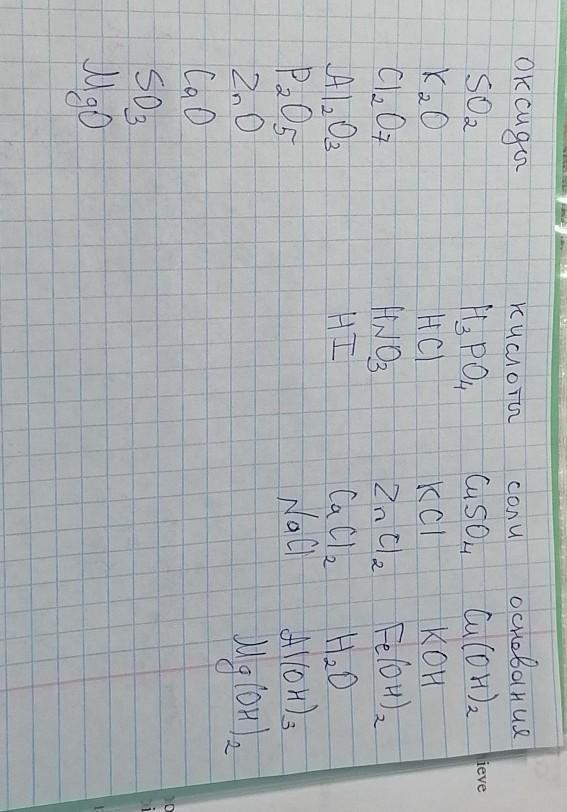 оксиды кислоты соли основания
SO2 H3PO4 CuSO4 Cu(OH)2
K2O HCl KCl KOH
Cl2O7 HNO3 ZnCl2 Fe(OH)2
Al2O3 HI CaCl2 H2O
P2O5 NaCl Al(OH)3
ZnO Mg(OH)2
CaO
SO3
MgO
ieve